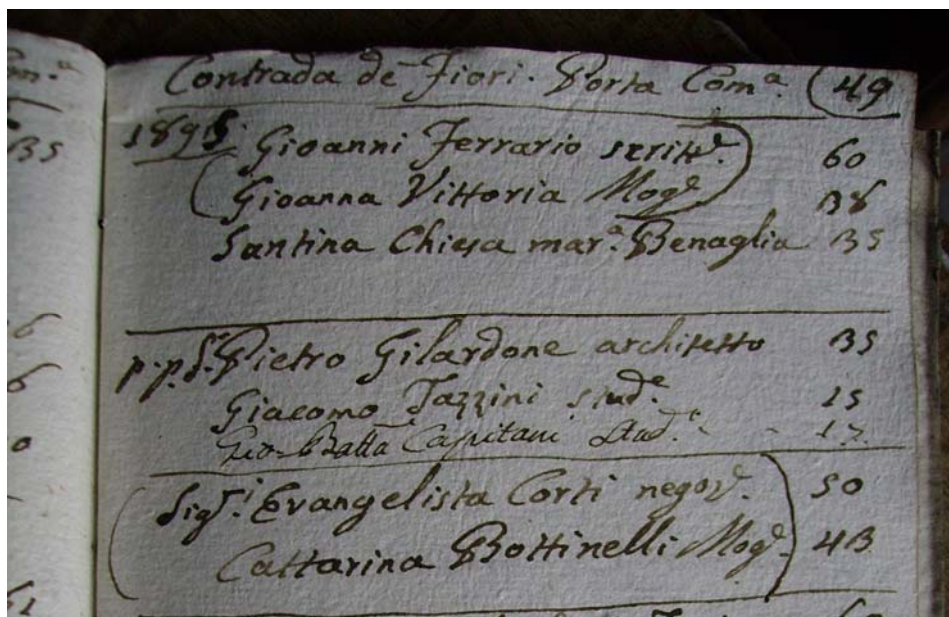 Contrada de Fiori. Porta Com.ª (49
1891. Gioanni Ferrario scritt.e 60
Gioanna Vittoria Mog.e 38
Santina Chiesa mar.ª Benaglia 35
p.p.S.r Pietro Gilardone architetto 35
Giacomo Tazzini stud.e 15
Gio. Batta Capitani Stud.e 17
Sig.ri Evangelista Corti negoz.e 50
Cattarina Bottinelli Mog.e 43